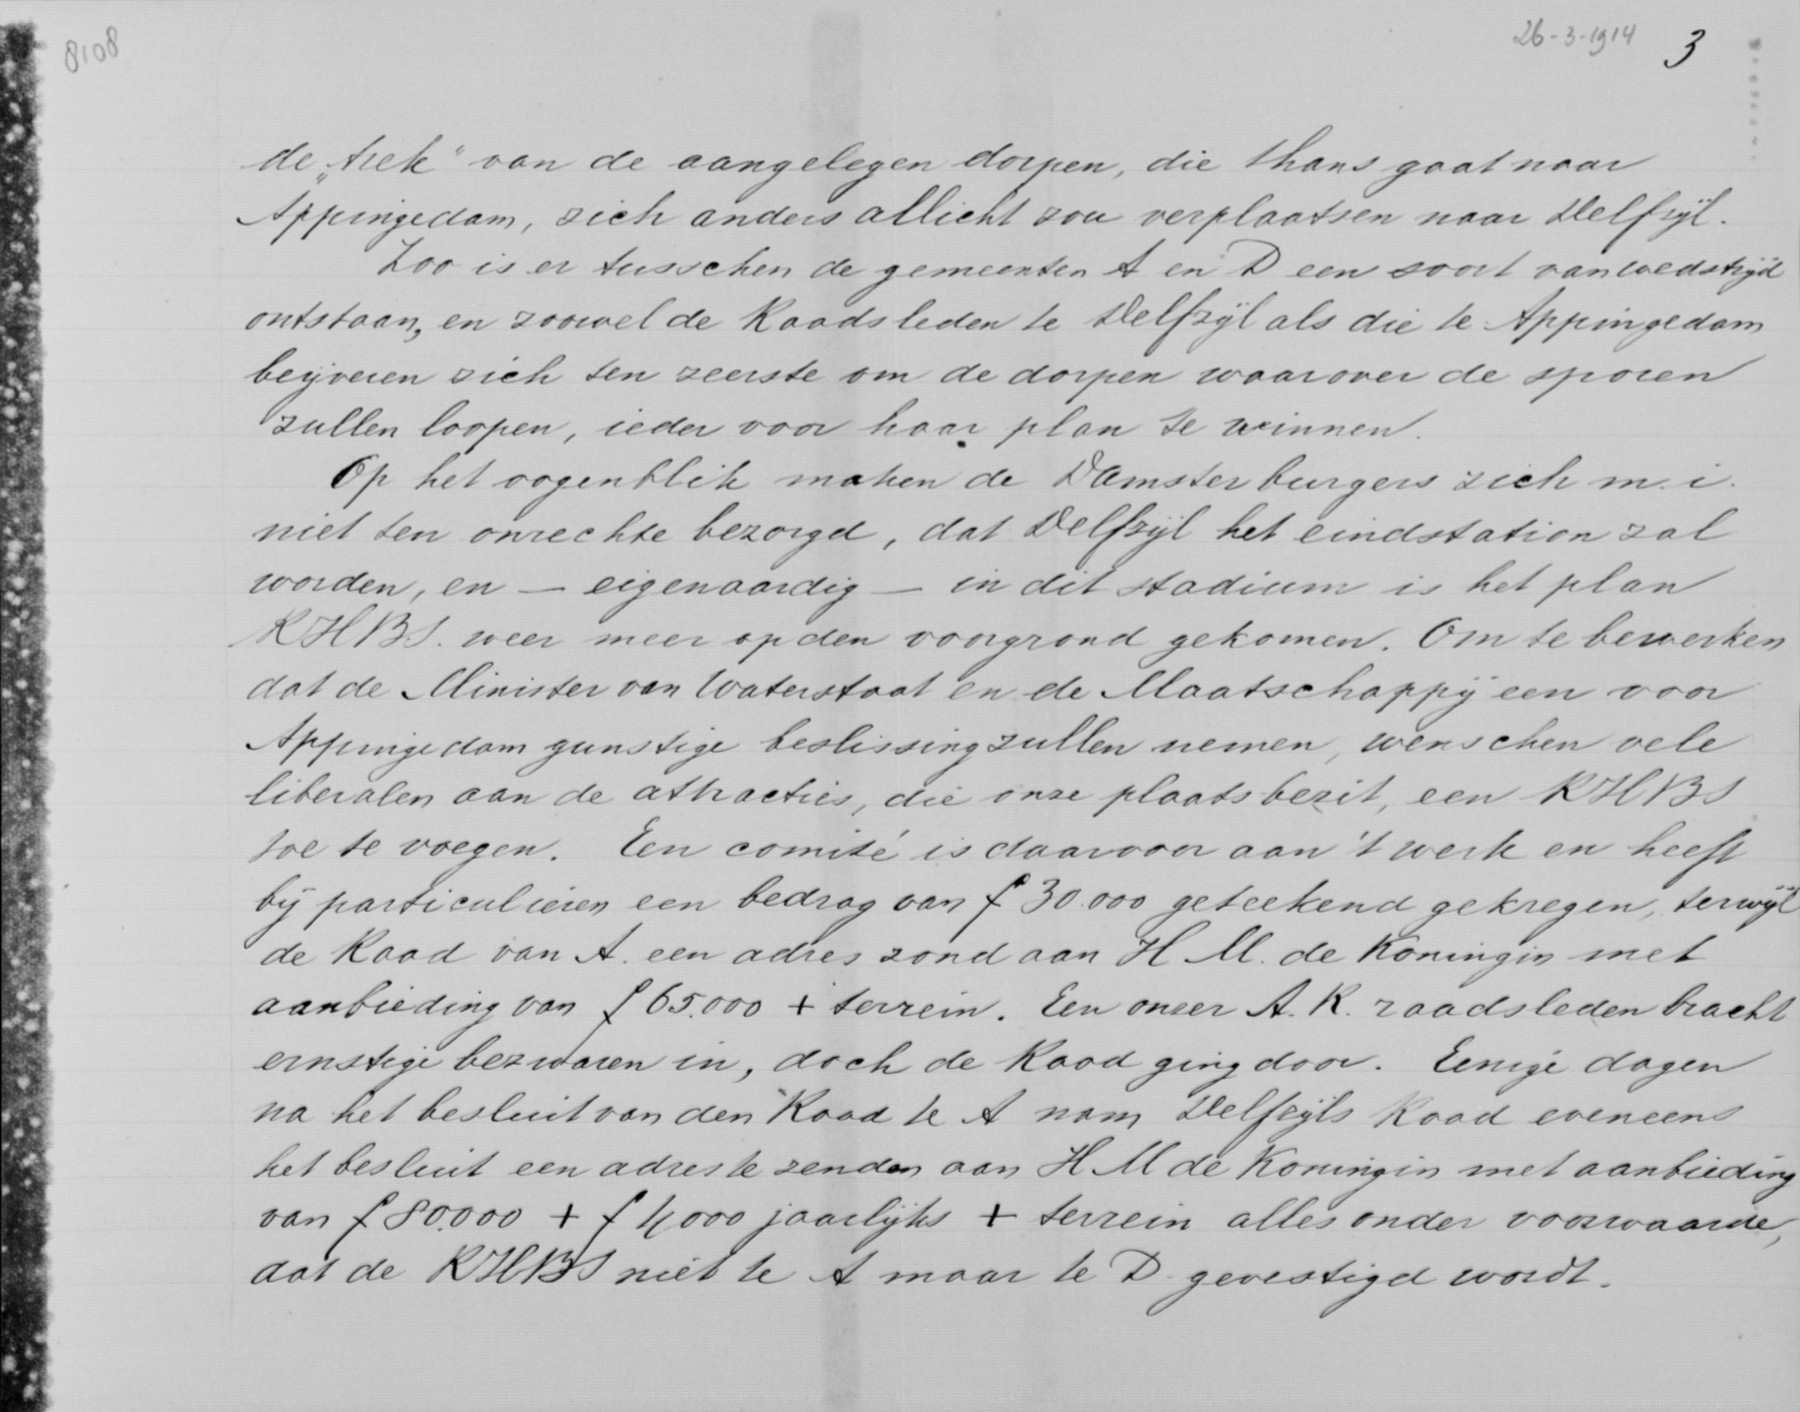 8108
26-3-1914 3
de „trek" van de aangelegen dorpen, die thans gaat naar
Appingedam, zich anders allicht zou verplaatsen naar Delfzijl.
Zoo is er tusschen de gemeenten A en D een soort van wedstrijd
ontstaan, en zoowel de Raadsleden te Delfzijl als die te Appingedam
beijveren zich ten zeerste om de dorpen waarover de sporen
zullen loopen, ieder voor haar plan te winnen.
Op het oogenblik maken de Damster burgers zich m. i.
niet ten onrechte bezorgd, dat Delfzijl het eindstation zal
worden, en — eigenaardig — in dit stadium is het plan
RHBS. weer meer op den voorgrond gekomen. Om te bewerken
dat de Minister van Waterstaat en de Maatschappij een voor
Appingedam gunstige beslissing zullen nemen, wenschen vele
liberalen aan de attracties, die onze plaats bezit, een RHBS
toe te voegen. Een comité is daarvoor aan 't werk en heeft
bij particulieren een bedrag van f 30.000 geteekend gekregen, terwijl
de Raad van A. een adres zond aan H M. de Koningin met
aanbieding van f 65.000 + terrein. Een onzer A. R. raadsleden bracht
ernstige bezwaren in, doch de Raad ging door. Eenige dagen
na het besluit van den Raad te A nam Delfzijls Raad eveneens
het besluit een adres te zenden aan H M de Koningin met aanbieding
van f 80.000 + f 4000 jaarlijks + terrein alles onder voorwaarde,
dat de RHBS niet te A maar te D gevestigd wordt.